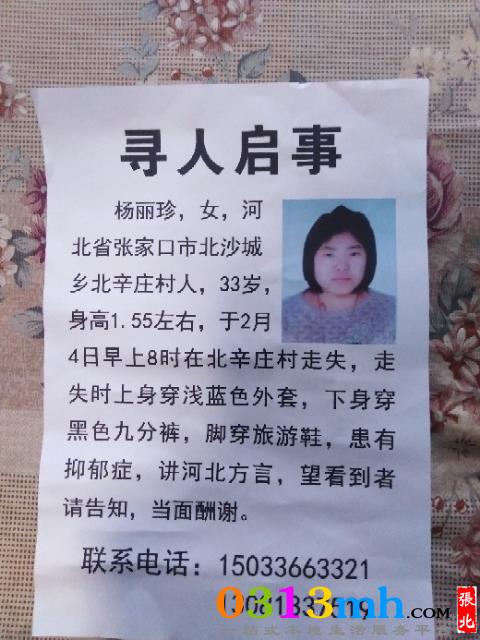 寻人启事
杨丽珍，女，河
北省张家口市北沙城
乡北辛庄村人，33岁，
身高1.55左右，于2月
4日早上8时在北辛庄村走失，走
失时上身穿浅蓝色外套，下身穿
黑色九分裤，脚穿旅游鞋，患有
抑郁症，讲河北方言，望看到者
请告知，当面酬谢。
联系电话：15033663321
0313mh.com
张北